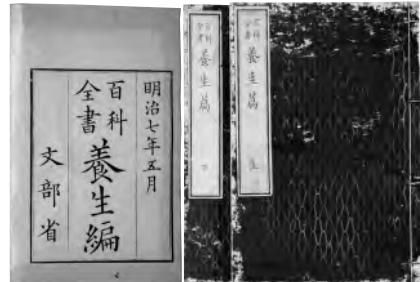 明治七年五月
百科
全書
養生編
文部省
百科
全書
養生篇
下
百科
全書
養生篇
上